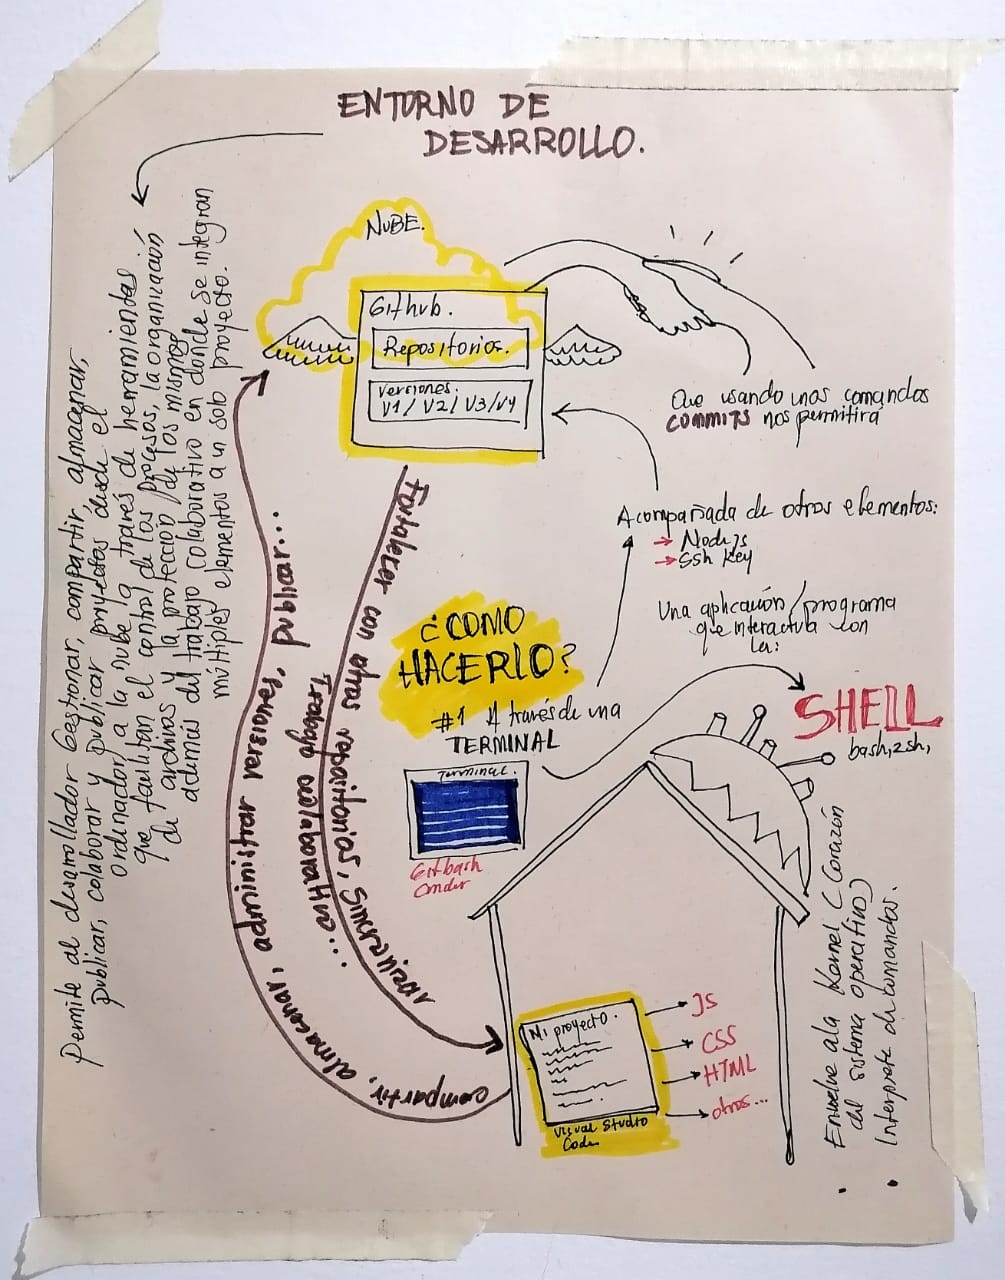 ENTORNO DE
DESARROLLO.
Permite al desarrollador Gestionar, compartir, almacenar,
publicar, colaborar y publicar proyectos desde el
ordenador a la nube la través de herramientas
que facilitan el control de los procesos, la organización
de archivos y la protección de los mismos
además del trabajo colaborativo en donde se integran
múltiples elementos a un solo proyecto.
NUBE.
Github.
Repositorios.
Versiones.
V1/ V2/ V3/V4
Que usando unos comandos
COMMITS nos permitirá
Acompañada de otros elementos:
→ Nodejs
→ Ssh Key
Una aplicación/programa
que interactua con
la:
SHELL
bash, zsh,
¿COMO
HACERLO?
#1 A través de una
TERMINAL
Terminal.
Gitbash
Cmder
Fortalecer con otros repositorios, sincronizar
Trabajo colaborativo...
compartir, almacenar, administrar versiones, publicar...
Mi proyecto.
Visual Studio
Code
JS
CSS
HTML
otros...
Envuelve a la Kernel (Corazón
del sistema operativo)
Interprete de comandos.